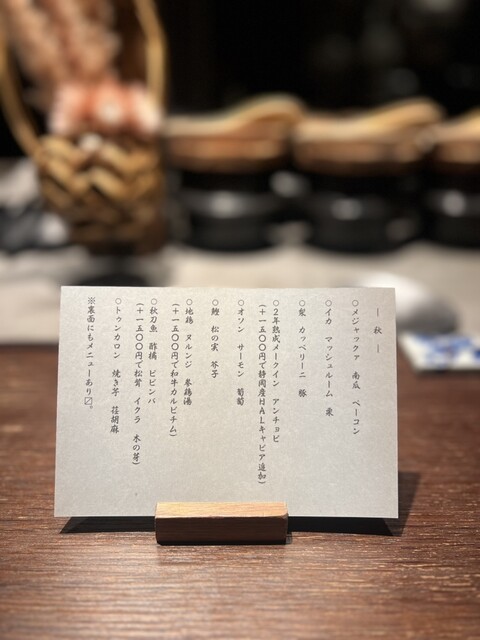 ― 秋 ―
○メジャックァ 南瓜 ベーコン
○イカ マッシュルーム 棗
○梨 カッペリーニ 豚
○2年熟成メークイン アンチョビ
(十一五〇〇円で静岡産HALキャビア追加)
○オソン サーモン 葡萄
○鰹 松の実 芥子
○地鶏 ヌルンジ 参鶏湯
(十一五〇〇円で和牛カルビチム)
○秋刀魚 酢橘 ビビンバ
(十一五〇〇円で松茸 イクラ 木の芽)
○トゥンカロン 焼き芋 荏胡麻
※裏面にもメニューあり〼。